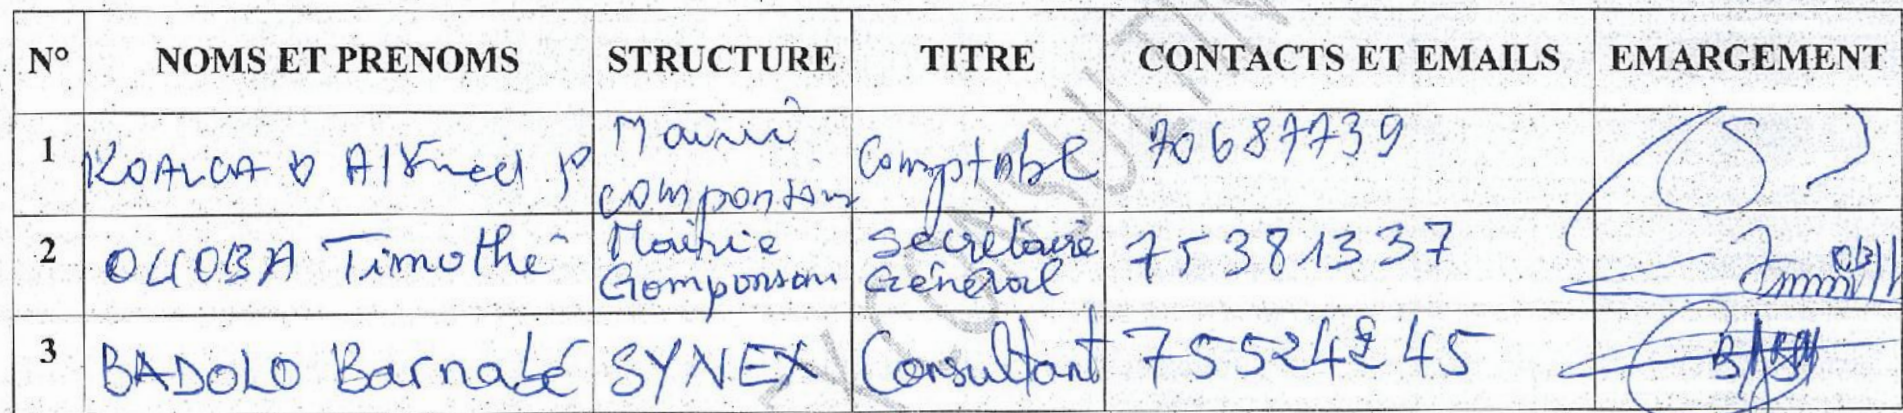 N° NOMS ET PRENOMS STRUCTURE TITRE CONTACTS ET EMAILS EMARGEMENT
1 Mairie Comptable 70687739
2 OUOBA Timothé Mairie Gomponsom Secrétaire Général 75381337
3 BADOLO Barnabé SYNEX Consultant 75524245